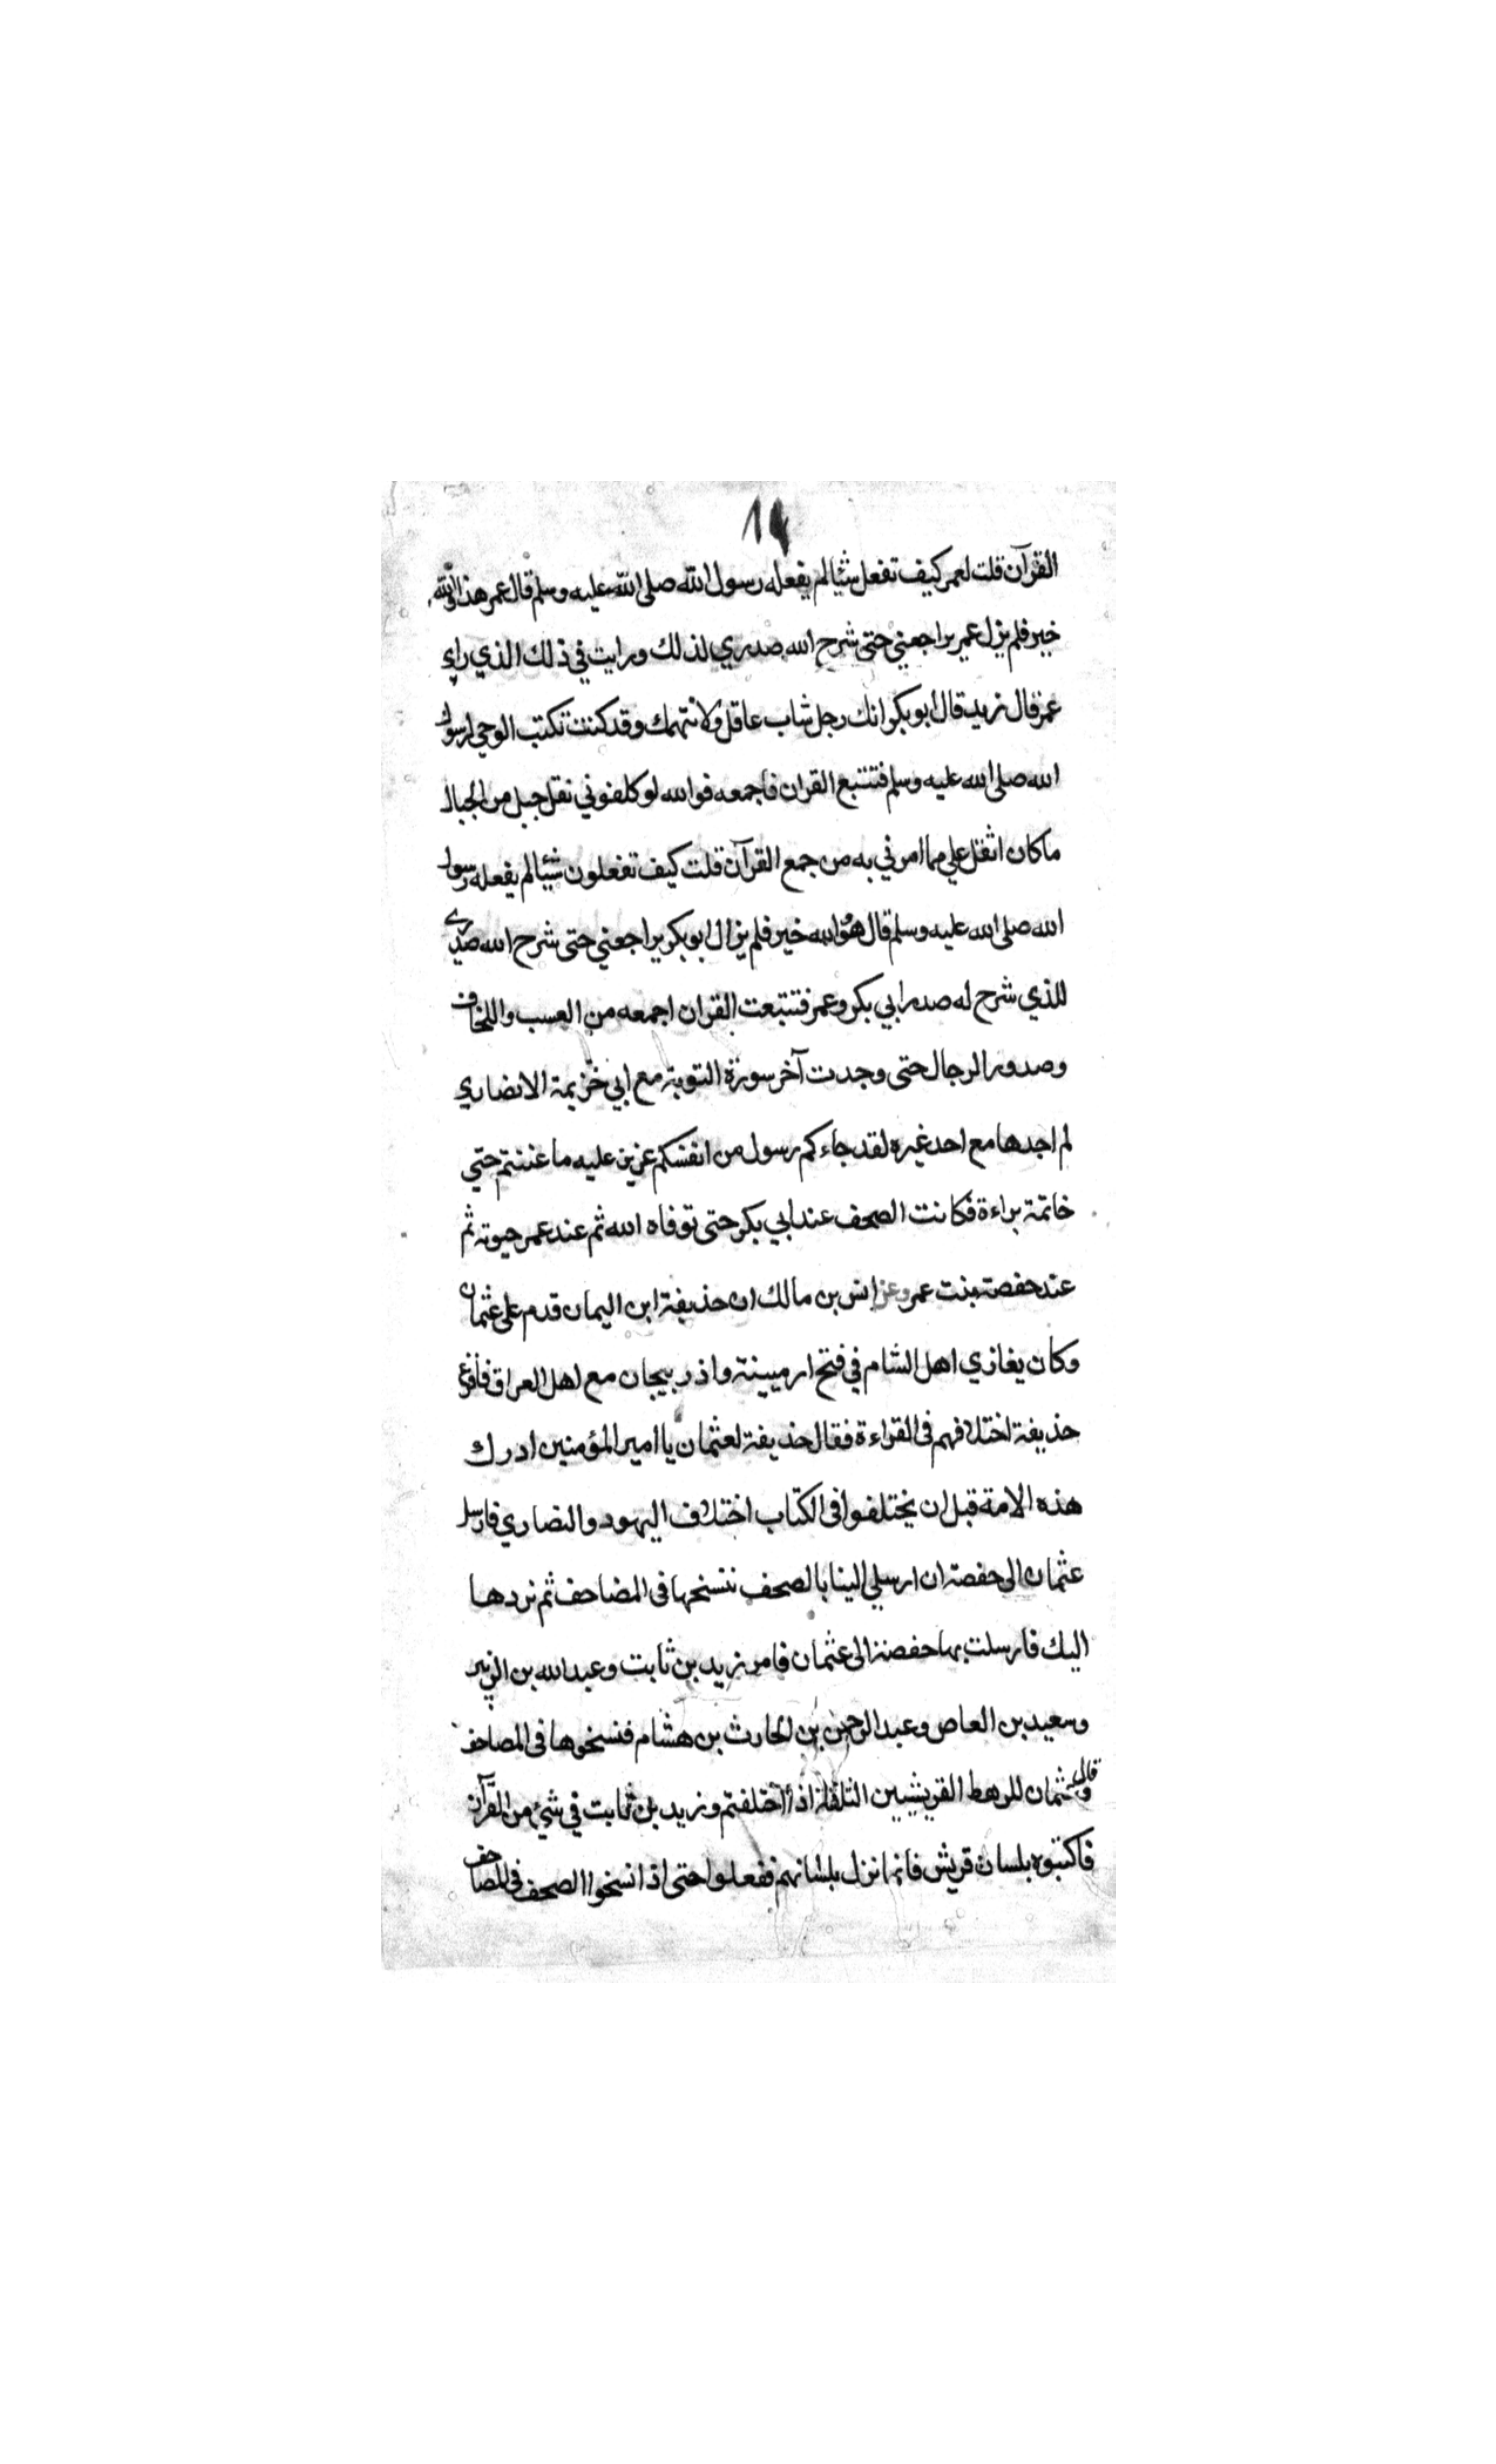 القرآن قلت لعمر كيف تفعل شئيا لم يفعله رسول الله صلى الله عليه وسلم قال عمر هذا والله
خير فلم يزل عمر يراجعني حتى شرح الله صدري لذلك ورايت في ذلك الذي راي
عمر قال زيد قال ابو بكر انك رجل شاب عاقل ولا نتهمك وقد كنت تكتب الوحي لرسول
الله صلى الله عليه وسلم فتتبع القران فاجمعه فوالله لو كلفوني نقل جبل من الجبال
ما كان اثقل علي مما امرني به من جمع القرآن قلت كيف تفعلون شئيا لم يفعله رسول
الله صلى الله عليه وسلم قال هو والله خير فلم يزال ابو بكر يراجعني حتى شرح الله صدري
للذي شرح له صدر ابي بكر وعمر فتتبعت القران اجمعه من العسب واللخاف
وصدور الرجال حتى وجدت آخر سورة التوبة مع ابي خزيمة الانصاري
لم اجدها مع احد غيره لقد جاءكم رسول من انفسكم عزيز عليه ما عنتم حتي
خاتمة براءة فكانت الصحف عند ابي بكر حتى توفاه الله ثم عند عمر حيوته ثم
عند حفصة بنت عمر وعن انس بن مالك ان حذيفة ابن اليمان قدم على عثمان
وكان يغازي اهل الشام في فتح ارميينة واذربيجان مع اهل العراق فافزع
حذيفة اختلافهم فى القراءة فقال حذيفة لعثمان يا امير المؤمنين ادرك
هذه الامة قبل ان يختلفوا فى الكتاب اختلاف اليهود والنصاري فارسل
عثمان الى حفصة ان ارسلي الينا بالصحف ننسخها فى المصاحف ثم نردها
اليك فارسلت بها حفصة الى عثمان فامر زيد بن ثابت وعبد الله بن الزبير
وسعيد بن العاص وعبد الرحمن بن الحارث بن هشام فنسخوها فى المصاحف
وقال عثمان للرهط القريشيين الثلثة اذا اختلفتم وزيد بن ثابت في شئ من القرآن
فاكتبوه بلسان قريش فانما نزل بلسانهم ففعلوا حتى اذا نسخوا الصحف في المصاحف